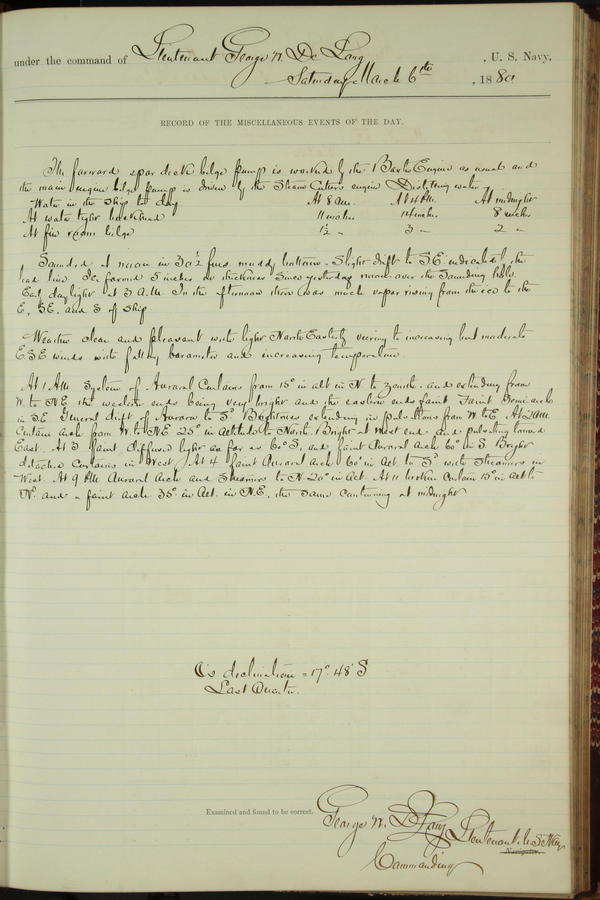 under the command of Lieutenant George W. De Long, U. S. Navy,
Saturday March 6th, 1880
RECORD OF THE MISCELLANEOUS EVENTS OF THE DAY.
The forward spar deck bilge pump is worked by the Baxter Engine as usual and
the main engine bilge pump is driven by the Steam Cutters engine Distilling water.
Water in the ship to day At 8 A.M. At 4 P.M. At midnight
At water tight bulkhead 11 inches 14 inches 8 inches
At fire room bilge 1½ " 3 " 2 "
Sounded at noon in 30½ fms. muddy bottom. Slight drift to SE indicated by the
lead line. Ice formed 5 inches in thickness since yesterday noon over the sounding hole.
Early daylight at 3 A.M. In the afternoon there was much vapor rising from the ice to the
E, SE, and S of ship
Weather clear and pleasant with light North Easterly veering to increasing but moderate
E.S.E. winds with falling barometer and increasing temperature.
At 1 A.M. System of Auroral Curtains from 15° in alt in N to zenith, and extending from
W. to N.E. the western ends being very bright and the eastern ends faint. Faint Semi arch
in S.E. General drift of Aurora to S'd Brightness extending in pulsations from W to E. At 2 A.M.
Curtain arch from W. to N.E. 25° in altitude to North Bright at West end and pulsating toward
East. At 3 faint, diffused light as far as 60° S, and faint Auroral Arch 60° in S. Bright
detached Curtains in West. At 4 faint Auroral Arch 60° in Alt. to S'd with Streamers in
West. At 9 P.M. Auroral Arch and Streamers to N. 20° in Alt. At 11 broken Curtain 15° in Alt to
N'd and a faint arch 35° in Alt. in N.E., the same continuing at midnight
☾'s declination = 17° 48' S
Last Quarter.
Examined and found to be correct.
George W. De Long Lieutenant U.S. Navy
Navigator.
Commanding